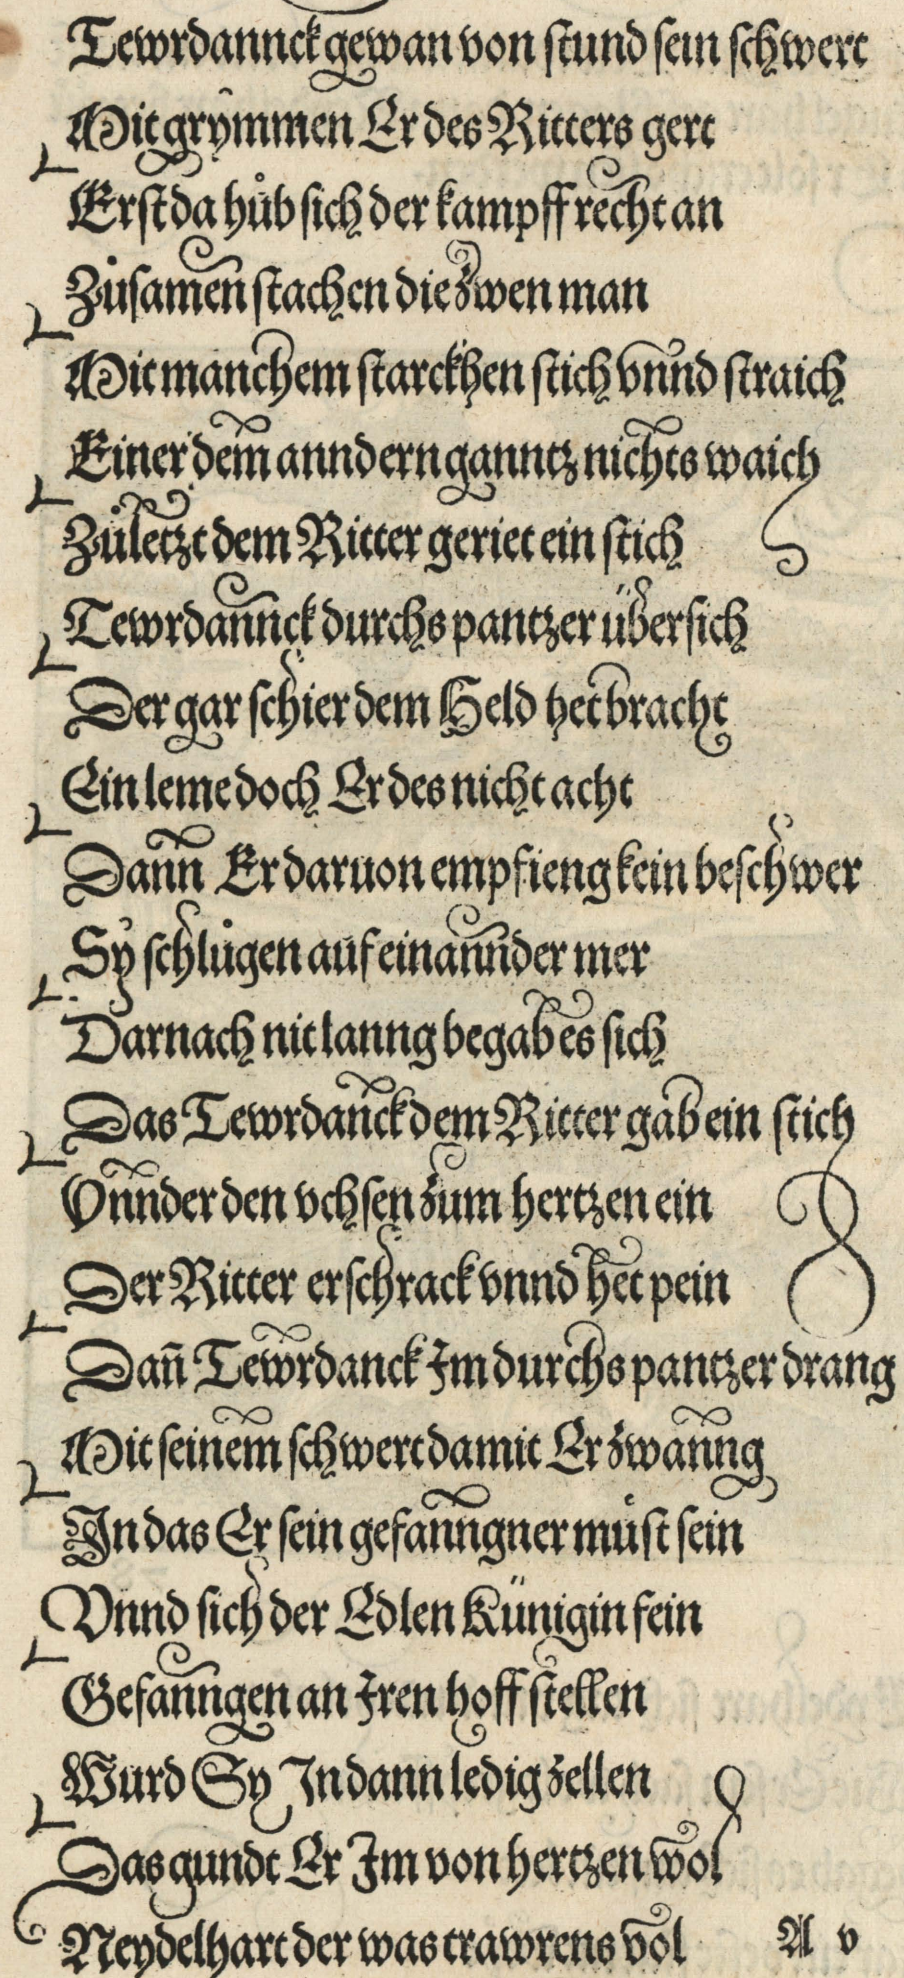 Tewrdannck gewan von stund sein schwert
Mit grymmen Er des Ritters gert
Erst da hůb sich der kampff recht an
Zůsamen stachen die zwen man
Mit manchem starckhen stich vnnd straich
Einer dem anndern ganntz nichts waich
Zůletzt dem Ritter geriet ein stich
Tewrdannck durchs pantzer übersich
Der gar schier dem Held het bracht
Ein leme doch Er des nicht acht
Dann Er daruon empfieng kein beschwer
Sy schlůgen auf einannder mer
Darnach nit lanng begab es sich
Das Tewrdanck dem Ritter gab ein stich
Vnnder den vchsen zum hertzen ein
Der Ritter erschrack vnnd het pein
Dañ Tewrdanck Im durchs pantzer drang
Mit seinem schwert damit Er zwanng
In das Er sein gefanngner můst sein
Vnnd sich der Edlen Künigin fein
Gefanngen an Iren hoff stellen
Wurd Sy In dann ledig zellen
Das gundt Er Im von hertzen wol
Neydelhart der was trawrens vol
A v